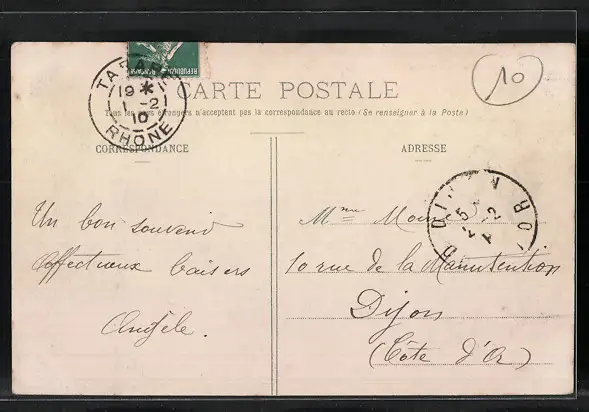 REPUBLIQUE
TARARE
19 * 10
1 -2
10
RHÔNE
CARTE POSTALE
Tous les pays étrangers n'acceptent pas la correspondance au recto (Se renseigner à la Poste)
10
CORRESPONDANCE
ADRESSE
Un bon souvenir
Affectueux baisers
Angèle.
DIJON
Mme
10 rue de la Manutention
Dijon
(Côte d'Or)